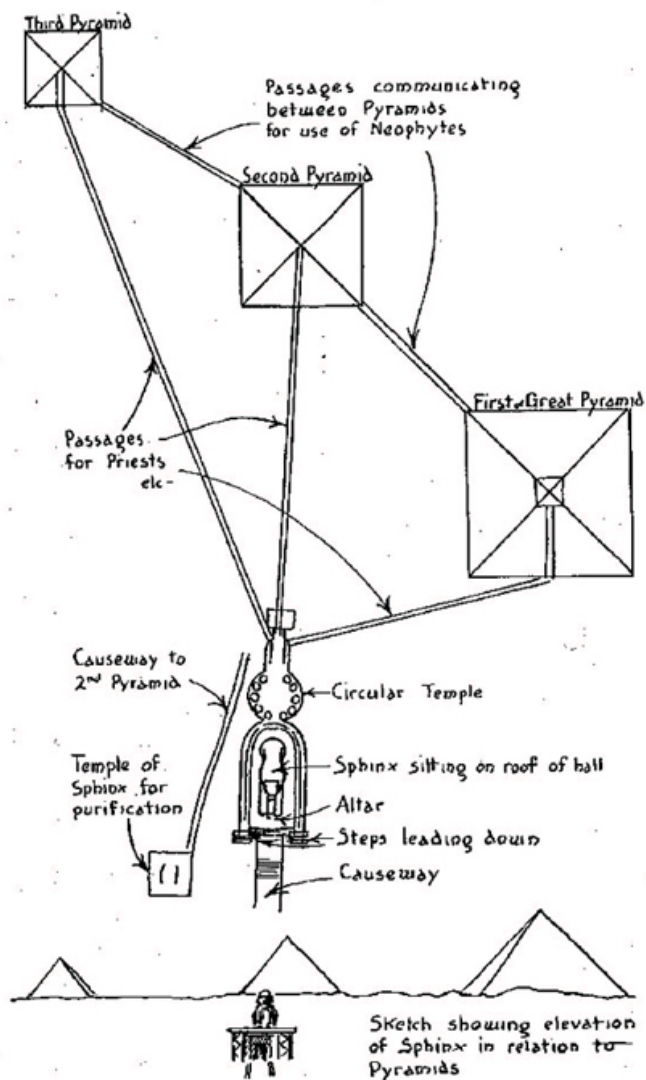 Third Pyramid
Passages communicating
between Pyramids
for use of Neophytes
Second Pyramid
First or Great Pyramid
Passages
for Priests
etc-
Causeway to
2nd Pyramid
Circular Temple
Temple of
Sphinx for
purification
Sphinx sitting on roof of hall
Altar
Steps leading down
Causeway
Sketch showing elevation
of Sphinx in relation to
Pyramids